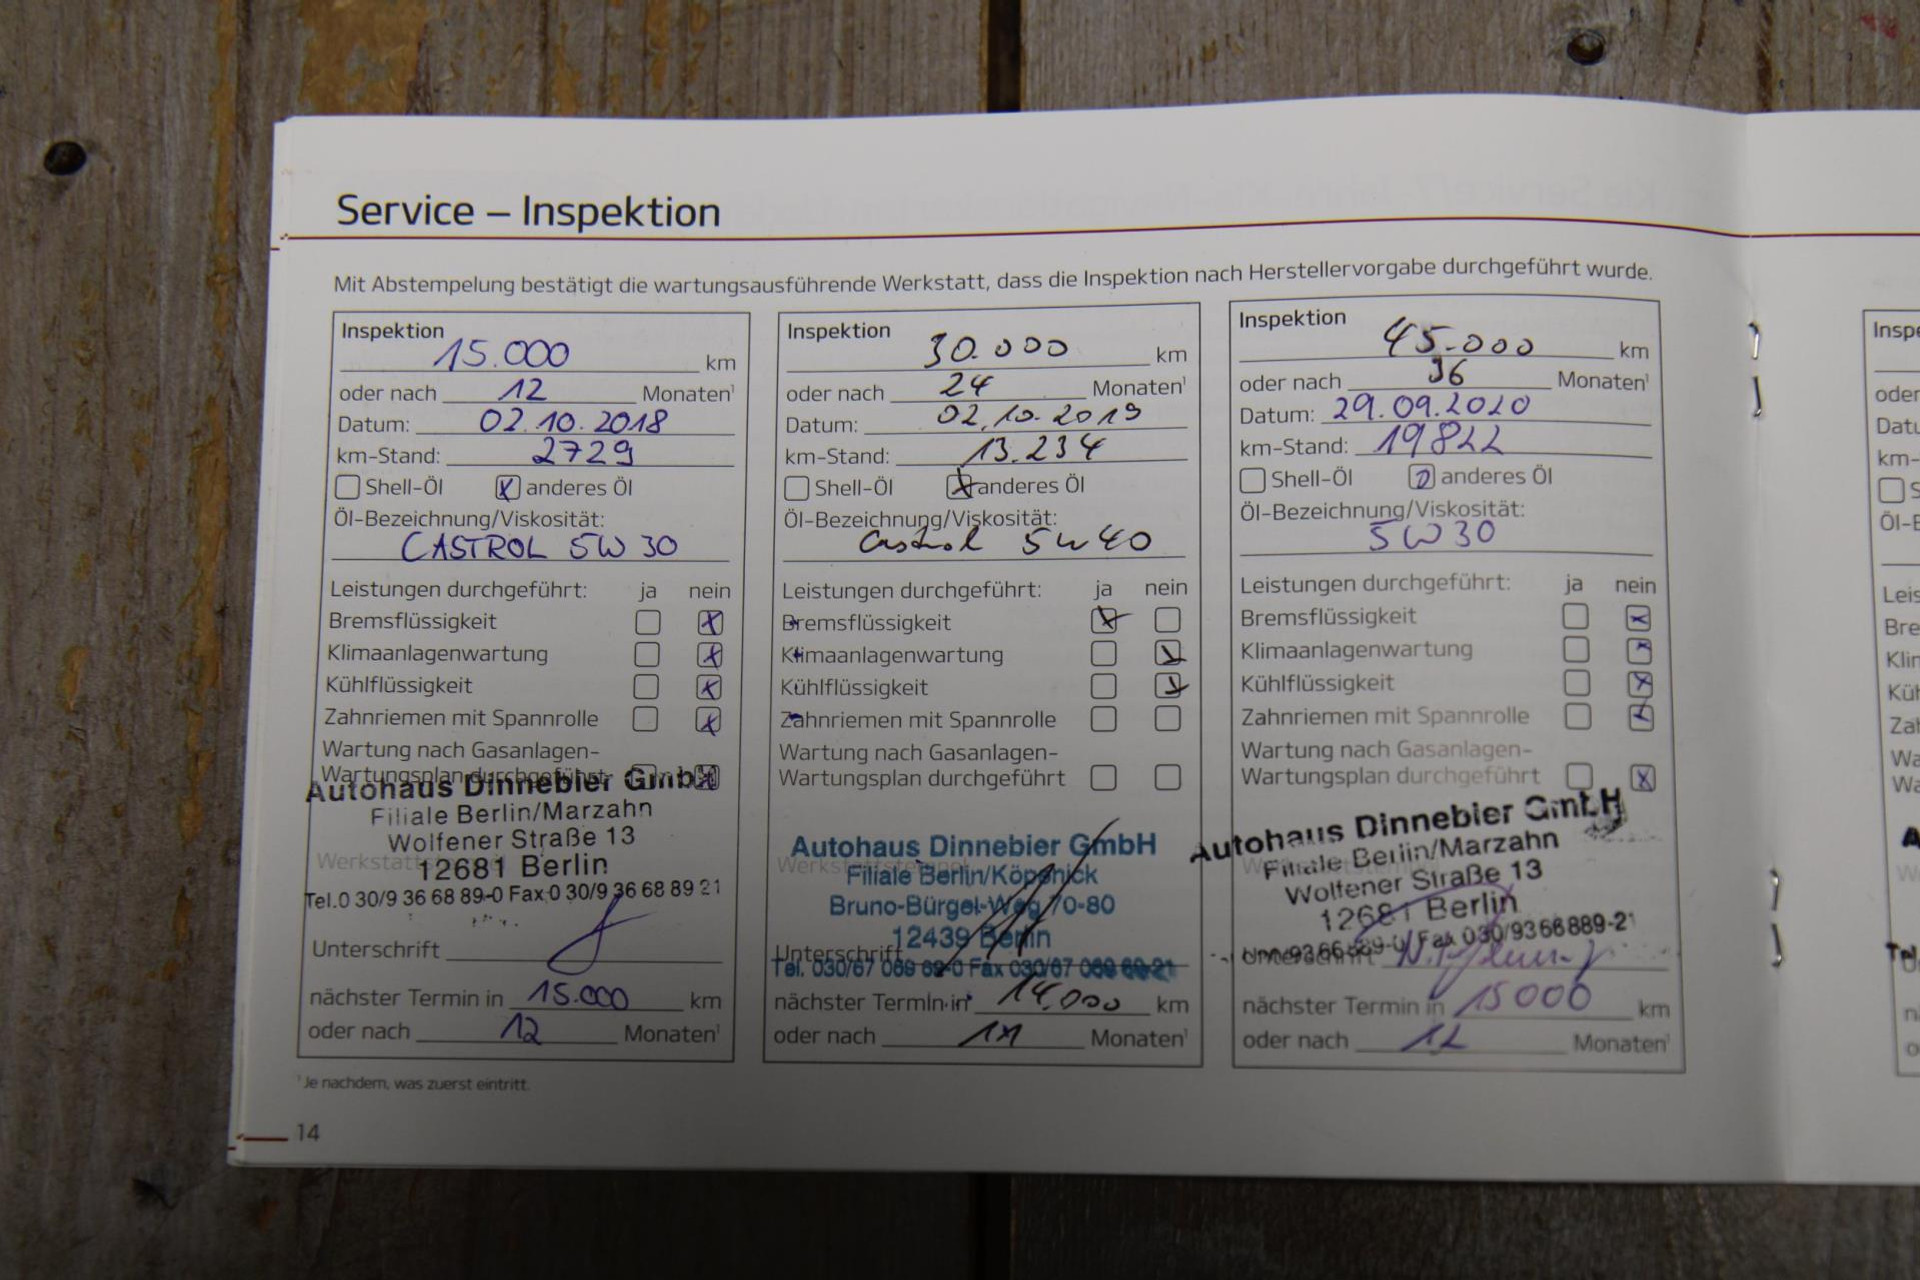 Service – Inspektion
Mit Abstempelung bestätigt die wartungsausführende Werkstatt, dass die Inspektion nach Herstellervorgabe durchgeführt wurde.
Inspektion
15.000 km
oder nach 12 Monaten¹
Datum: 02.10.2018
km-Stand: 2729
Shell-Öl anderes Öl
Öl-Bezeichnung/Viskosität:
CASTROL 5W30
Leistungen durchgeführt: ja nein
Bremsflüssigkeit
Klimaanlagenwartung
Kühlflüssigkeit
Zahnriemen mit Spannrolle
Wartung nach Gasanlagen-
Wartungsplan durchgeführt
Autohaus Dinnebier GmbH
Filiale Berlin/Marzahn
Wolfener Straße 13
Werkstattstempel
12681 Berlin
Tel.0 30/9 36 68 89-0 Fax 0 30/9 36 68 89 21
Unterschrift
nächster Termin in 15.000 km
oder nach 12 Monaten¹
Inspektion
30.000 km
oder nach 24 Monaten¹
Datum: 02.10.2019
km-Stand: 13.234
Shell-Öl anderes Öl
Öl-Bezeichnung/Viskosität:
Castrol 5W40
Leistungen durchgeführt: ja nein
Bremsflüssigkeit
Klimaanlagenwartung
Kühlflüssigkeit
Zahnriemen mit Spannrolle
Wartung nach Gasanlagen-
Wartungsplan durchgeführt
Autohaus Dinnebier GmbH
Werkstattstempel
Filiale Berlin/Köpenick
Bruno-Bürgel-Weg 70-80
12439 Berlin
Unterschrift
Tel. 030/67 069 69-0 Fax 030/67 069 69-21
nächster Termin in 14.000 km
oder nach Monaten¹
Inspektion
45.000 km
oder nach 36 Monaten¹
Datum: 29.09.2020
km-Stand: 19822
Shell-Öl anderes Öl
Öl-Bezeichnung/Viskosität:
5W30
Leistungen durchgeführt: ja nein
Bremsflüssigkeit
Klimaanlagenwartung
Kühlflüssigkeit
Zahnriemen mit Spannrolle
Wartung nach Gasanlagen-
Wartungsplan durchgeführt
Autohaus Dinnebier GmbH
Filiale Berlin/Marzahn
Wolfener Straße 13
12681 Berlin
Fax 030/9366889-21
Unterschrift
nächster Termin in 15000 km
oder nach 12 Monaten¹
¹Je nachdem, was zuerst eintritt.
14